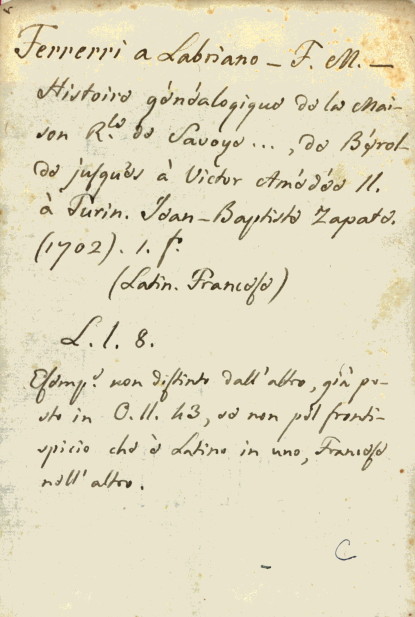 Ferrerri a Labriano – F. M. –
Histoire généalogique de la Mai-
son R.le de Savoye ... , de Bérol-
de jusques à Victor Amédée II.
à Turin. Jean-Baptiste Zapate.
(1702). 1. f.°
(Latin. Francese)
L. l. 8.
Esemp.e non distinto dall'altro, già po-
sto in O. II. 43, se non pel fronti-
spicio che è Latino in uno, Francese
nell'altro.
C